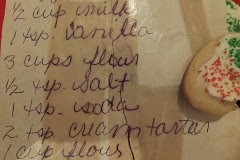 ½ cup milk
1 tsp. vanilla
3 cups flour
½ tsp. salt
1 tsp. soda
2 tsp. cream tartar
1 cup flour